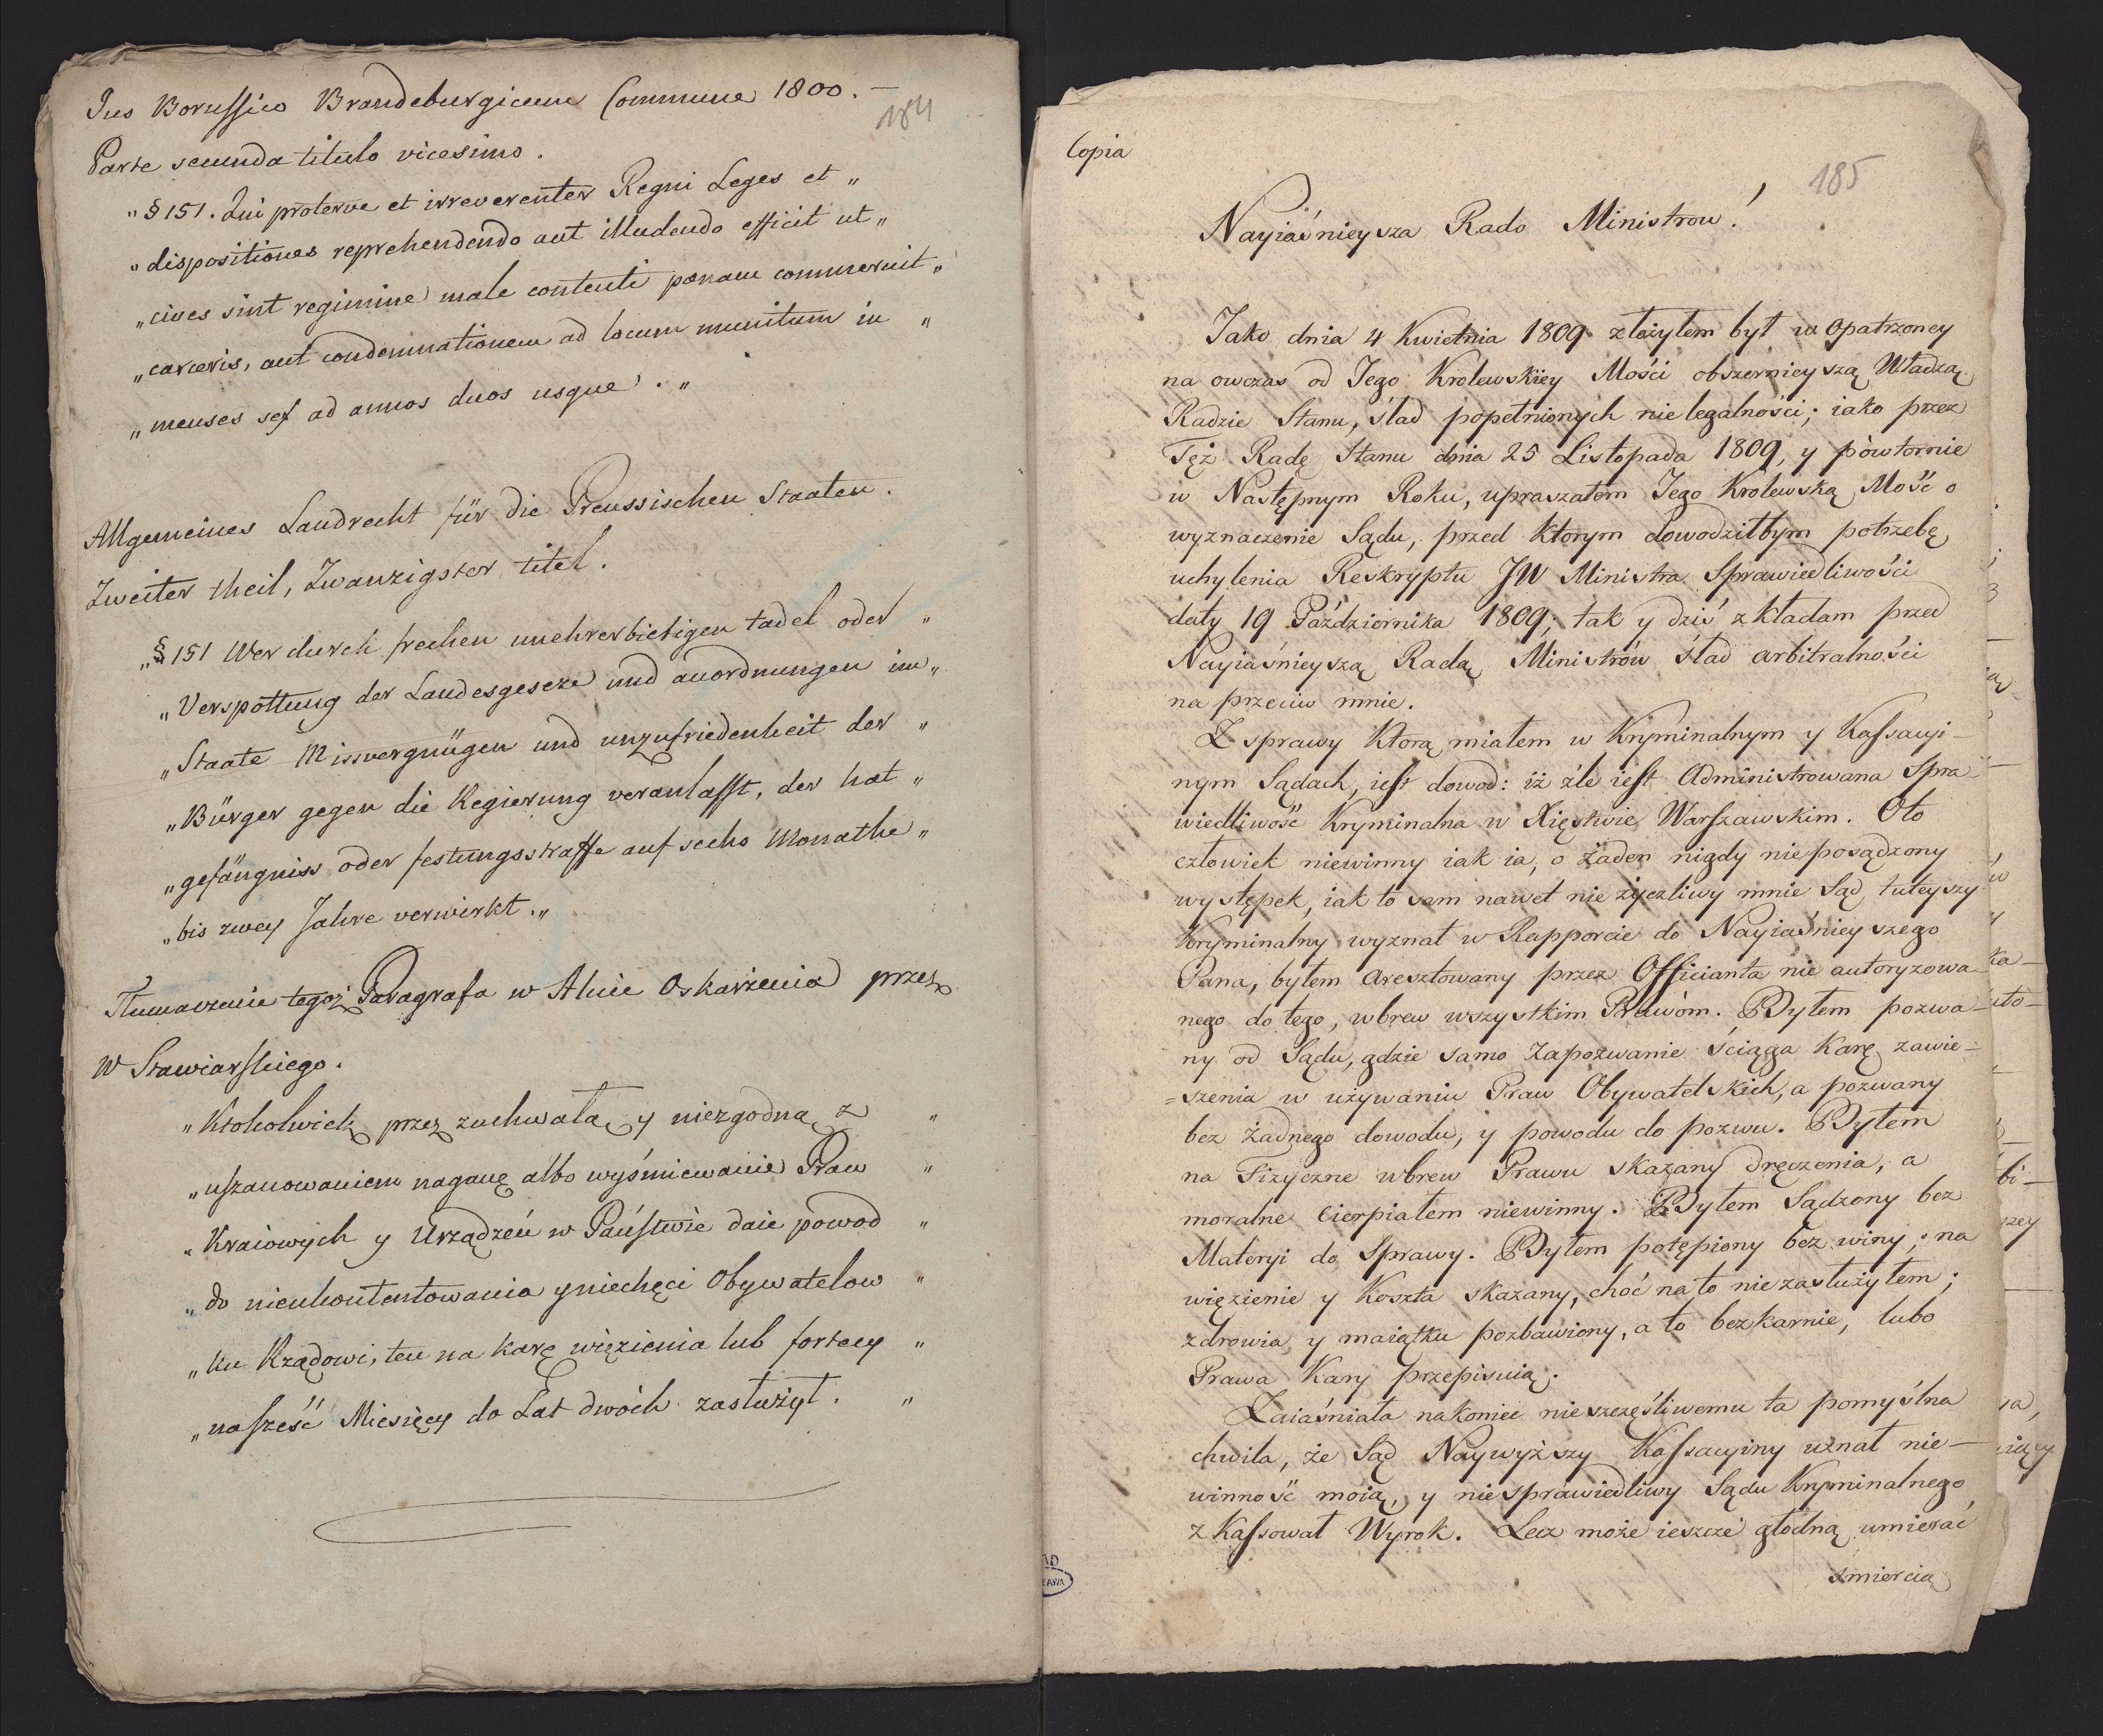 Jus Borussico Brandeburgicum Commune 1800. —
184
Parte secunda titulo vicesimo.
„§ 151. Qui proterve et irreverenter Regni Leges et „
„dispositiones reprehendendo aut illudendo efficit ut „
„cives sint regimine male contenti pœnam commeruit „
„carceris, aut condemnationem ad locum munitum in „
„menses sex ad annos duos usque. „
Allgemeines Landrecht für die Preussischen Staaten.
Zweiter theil, Zwanzigster titel.
„§ 151 Wer durch frechen unehrerbietigen tadel oder „
„Verspottung der Landesgeseze und anordnungen im „
„Staate Missvergnügen und unzufriedenheit der „
„Bürger gegen die Regierung veranlasst, der hat „
„gefängniss oder festungsstraffe auf sechs Monathe „
„bis zwey Jahre verwirkt. „
Tłumaczenie tegoż Paragrafa w Akcie Oskarżenia przez
W Stawiarskiego.
„Ktokolwiek przez zuchwałą y niezgodną z „
„uszanowaniem naganę albo wyśmiewanie Praw „
„Kraiowych y Urządzeń w Państwie daie powod „
„do nieukontentowania y niechęci Obywatelow „
„ku Rządowi, ten na karę więzienia lub fortecy „
„na sześć Miesięcy do Lat dwóch zasłużył. „
Copia
185
Nayiaśnieysza Rado Ministrow!
Jako dnia 4 Kwietnia 1809 złożyłem był w Opatrzoney
na owczas od Jego Krolewskiey Mości obszernieyszą Władzą
Radzie Stanu, ślad popełnionych nielegalności; iako przez
Tęż Radę Stanu dnia 25 Listopada 1809, y powtornie
w Następnym Roku, upraszałem Jego Krolewską Mość o
wyznaczenie Sądu, przed Ktorym dowodziłbym potrzebę
uchylenia Reskryptu JW Ministra Sprawiedliwości
daty 19 Października 1809; tak y dziś zkładam przed
Nayiaśnieyszą Radą Ministrów ślad arbitralności
na przeciw mnie.
Z sprawy Ktorą miałem w Kryminalnym y Kassacyi-
nym Sądach, iest dowod: iż źle iest Administrowana Spra-
wiedliwość Kryminalna w Xięstwie Warszawskim. Oto
człowiek niewinny iak ia, o żaden nigdy nieposądzony
występek, iak to sam nawet nie życzliwy mnie Sąd tuteyszy
Kryminalny wyznał w Rapporcie do Nayiaśnieyszego
Pana, byłem aresztowany przez Officianta nie autoryzowa-
nego do tego, wbrew wszystkim Prawóm. Byłem pozwa-
ny od Sądu, gdzie samo Zapozwanie ściąga Karę zawie-
=szenia w używaniu Praw Obywatelskich, a pozwany
bez żadnego dowodu, y powodu do pozwu. Byłem
na Fizyczne wbrew Prawu skazany dręczenia, a
moralne cierpiałem niewinny. Byłem Sądzony bez
Materyi do Sprawy. Byłem potępiony bez winy; na
więzienie y Koszta skazany, choć na to nie zasłużyłem;
zdrowia y maiątku pozbawiony, a to bezkarnie, lubo
Prawa Kary przepisuią.
Zaiaśniała nakoniec nieszczęśliwemu ta pomyślna
chwila, że Sąd Naywyższy Kassacyiny uznał nie-
winność moią, y niesprawiedliwy Sądu Kryminalnego
zKassował Wyrok. Lecz może ieszcze głodną umierać
śmiercią